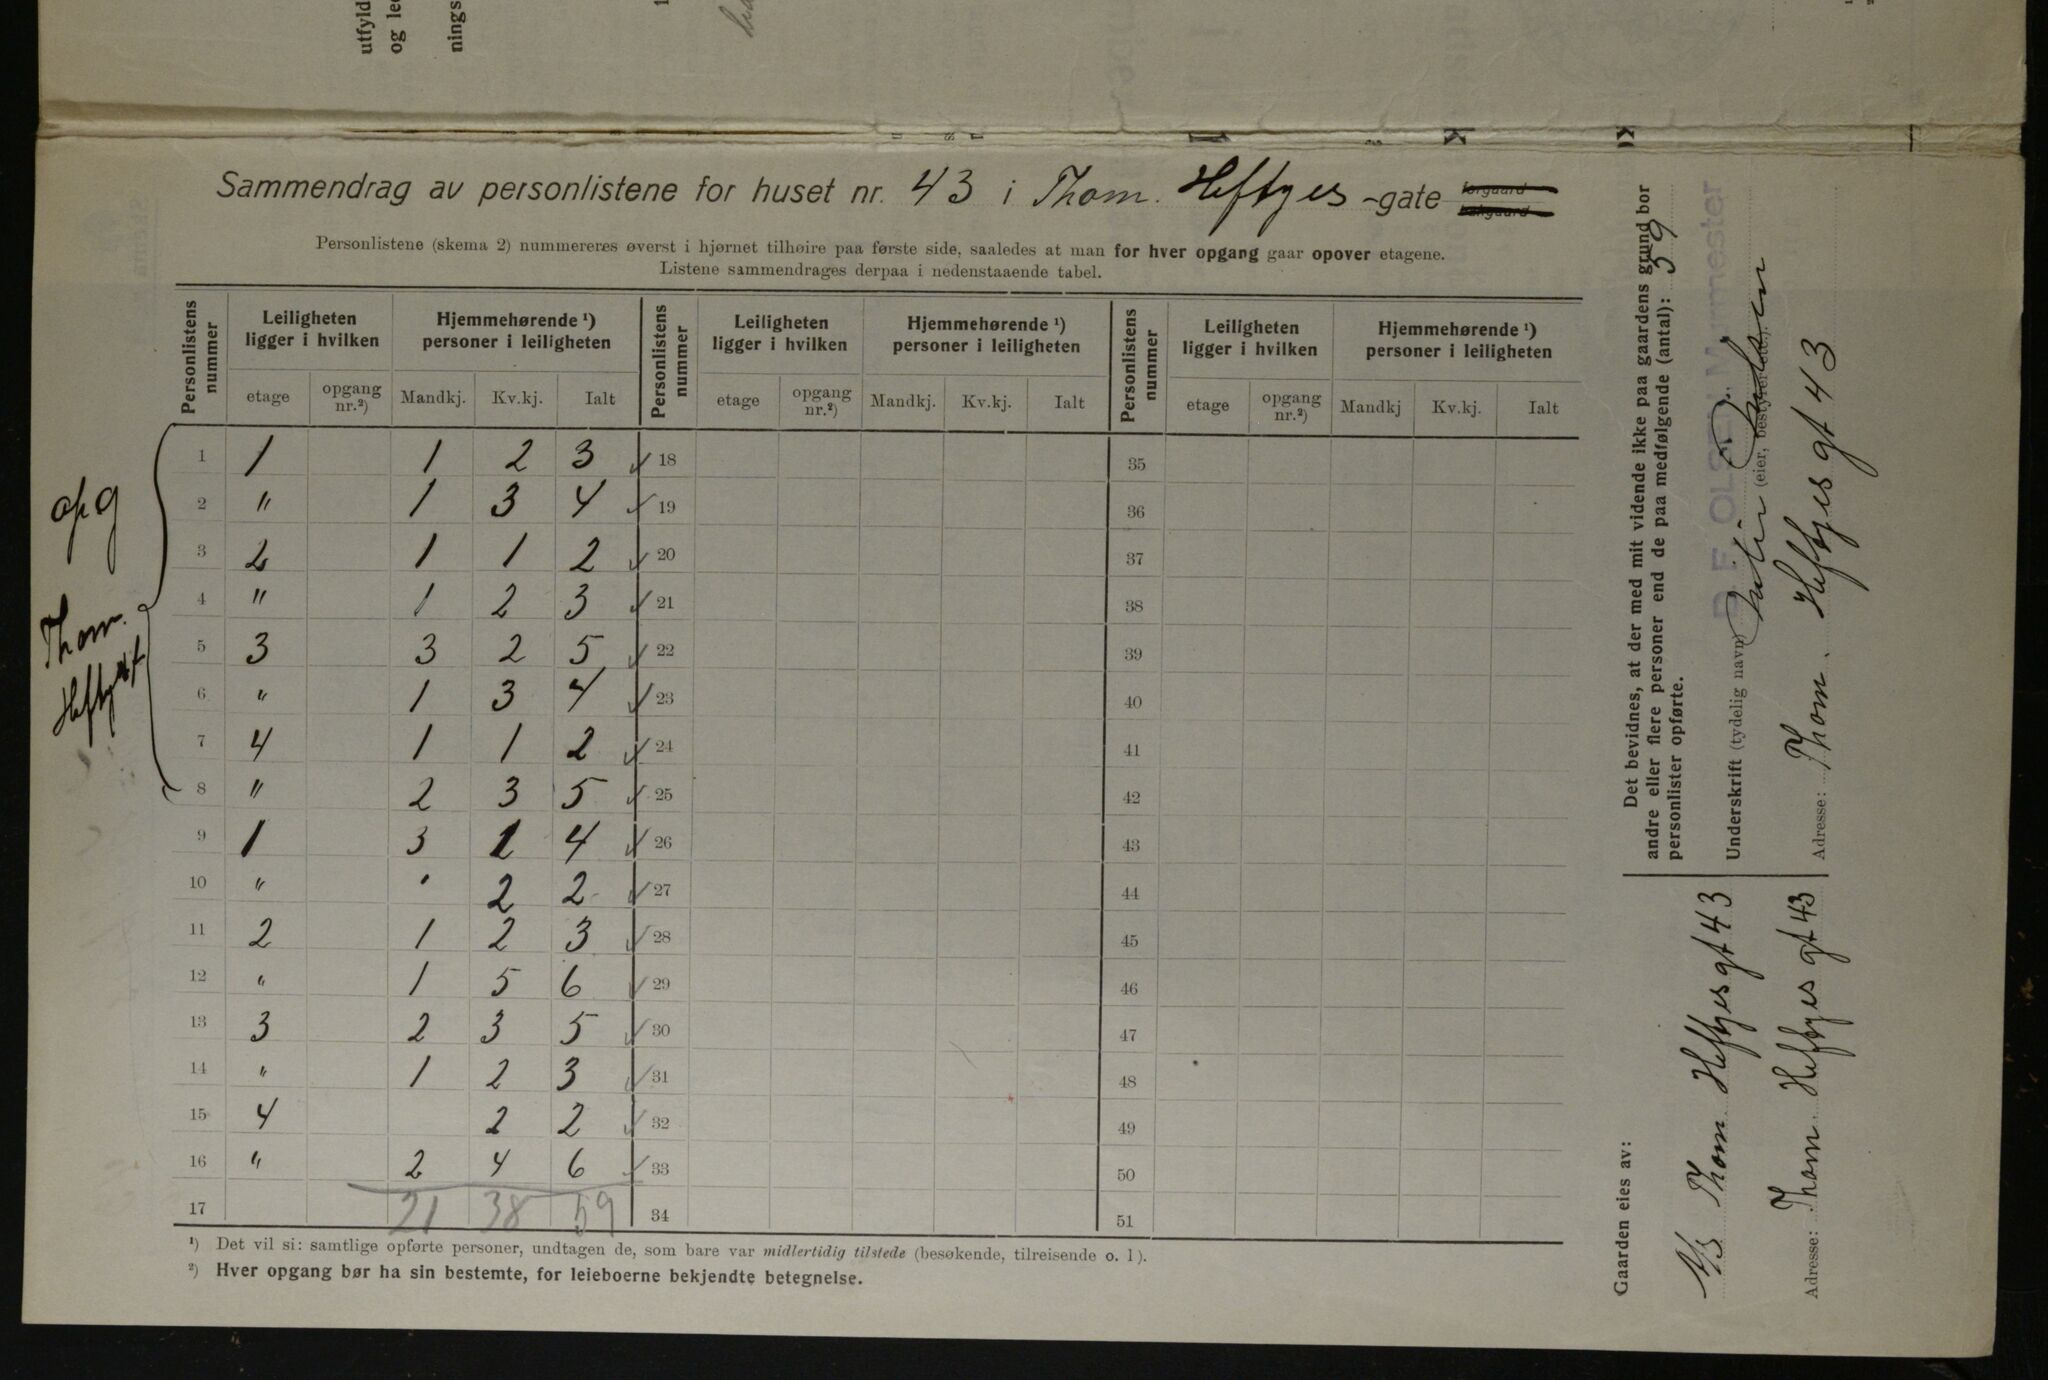 utfyld
og le
nings
Sammendrag av personlistene for huset nr. 43 i Thom. Heftyes -gate forgaard bakgaard
Personlistene (skema 2) nummereres øverst i hjørnet tilhøire paa første side, saaledes at man for hver opgang gaar opover etagene.
Listene sammendrages derpaa i nedenstaaende tabel.
Personlistens nummer | Leiligheten ligger i hvilken | Hjemmehørende ¹) personer i leiligheten | Personlistens nummer | Leiligheten ligger i hvilken | Hjemmehørende ¹) personer i leiligheten | Personlistens nummer | Leiligheten ligger i hvilken | Hjemmehørende ¹) personer i leiligheten
etage | opgang nr.²) | Mandkj. | Kv.kj. | Ialt | etage | opgang nr.²) | Mandkj. | Kv.kj. | Ialt | etage | opgang nr.²) | Mandkj | Kv.kj. | Ialt
1 1 1 2 3 ✓ 18 35
2 " 1 3 4 ✓ 19 36
3 2 1 1 2 ✓ 20 37
4 " 1 2 3 ✓ 21 38
5 3 3 2 5 ✓ 22 39
6 " 1 3 4 ✓ 23 40
7 4 1 1 2 ✓ 24 41
8 " 2 3 5 ✓ 25 42
9 1 3 1 4 ✓ 26 43
10 " • 2 2 ✓ 27 44
11 2 1 2 3 ✓ 28 45
12 " 1 5 6 ✓ 29 46
13 3 2 3 5 ✓ 30 47
14 " 1 2 3 ✓ 31 48
15 4 2 2 ✓ 32 49
16 " 2 4 6 ✓ 33 50
17 21 38 59 34 51
opg
Thom.
Heftyesgt
¹) Det vil si: samtlige opførte personer, undtagen de, som bare var midlertidig tilstede (besøkende, tilreisende o. l).
²) Hver opgang bør ha sin bestemte, for leieboerne bekjendte betegnelse.
Det bevidnes, at der med mit vidende ikke paa gaardens grund bor
andre eller flere personer end de paa medfølgende (antal): 59
personlister opførte.
Underskrift (tydelig navn)
(eier, bestyrer etc.).
Adresse: Thom. Heftyes gt 43
Gaarden eies av:
A/S Thom Heftyesgt 43
Adresse: Thom. Heftyes gt 43